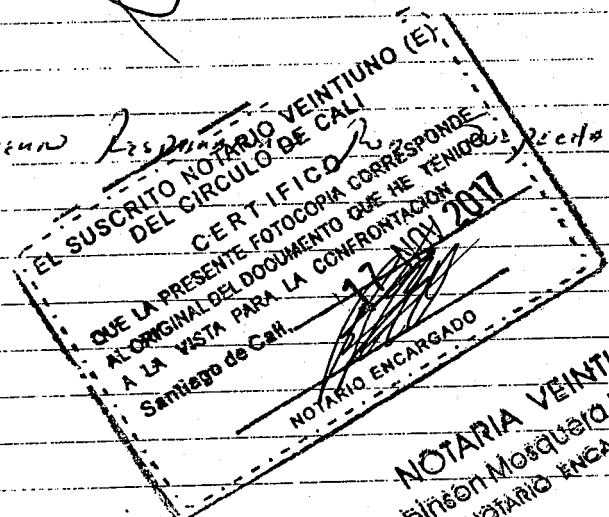 EL SUSCRITO NOTARIO VEINTIUNO (E)
DEL CIRCULO DE CALI
CERTIFICO
QUE LA PRESENTE FOTOCOPIA CORRESPONDE
AL ORIGINAL DEL DOCUMENTO QUE HE TENIDO
A LA VISTA PARA LA CONFRONTACION
Santiago de Cali, 17 NOV 2017
NOTARIO ENCARGADO
NOTARIA VEINTI
inson Mosquera
NOTARIO ENCA